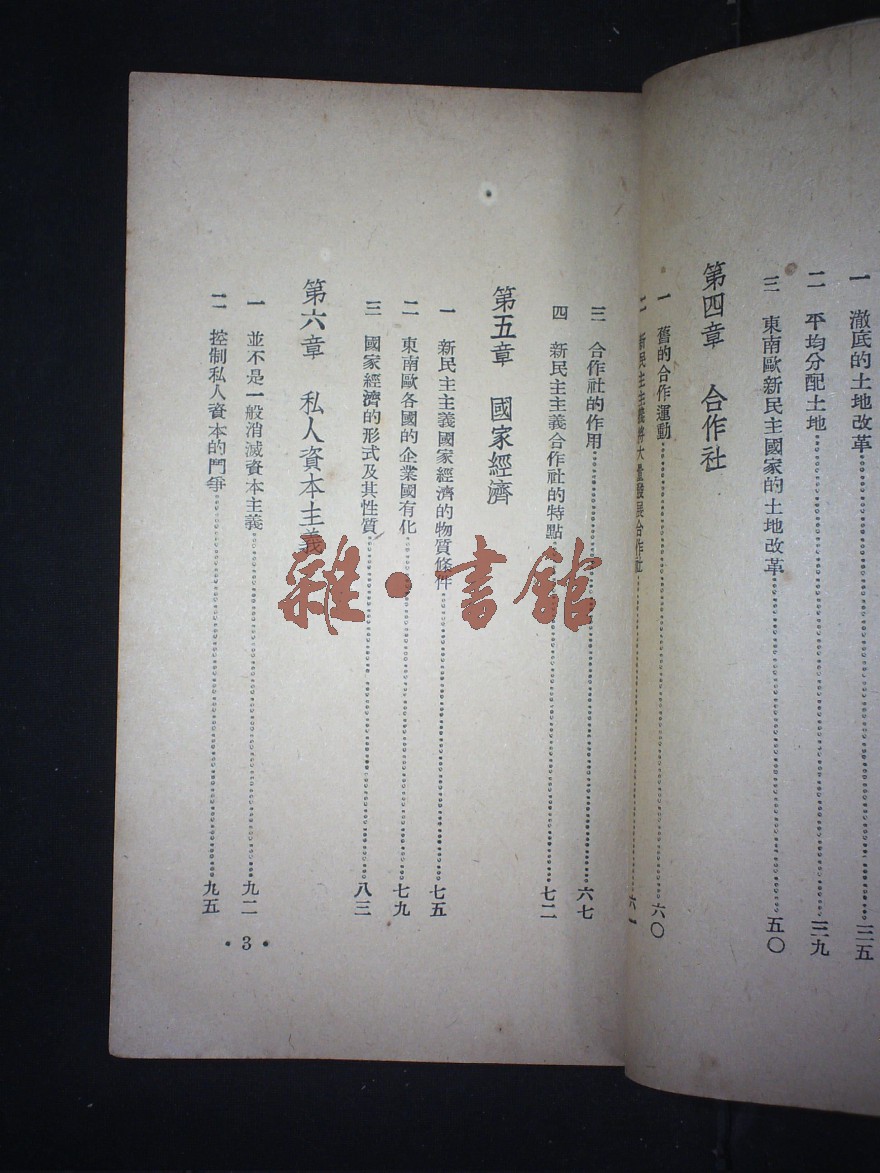 一　澈底的土地改革………三五
二　平均分配土地………三九
三　東南歐新民主國家的土地改革………五〇
第四章　合作社
一　舊的合作運動………六〇
二　新民主主義將大量發展合作社………六一
三　合作社的作用………六七
四　新民主主義合作社的特點………七二
第五章　國家經濟
一　新民主主義國家經濟的物質條件………七五
二　東南歐各國的企業國有化………七九
三　國家經濟的形式及其性質………八三
第六章　私人資本主義
一　並不是一般消滅資本主義………九二
二　控制私人資本的鬥爭………九五
• 3 •
雜•書館